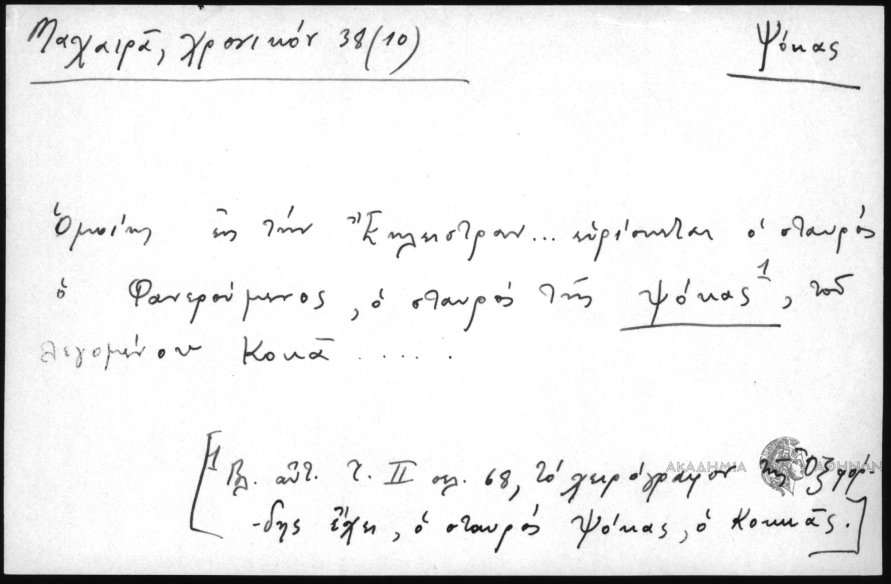 Μαχαιρᾶ, χρονικόν 38 (10)
Ψόκας
Ὁμοίως εἰς τὴν Ἔγκλειστραν... εὑρίσκεται ὁ σταυρός
ὁ Φανερούμενος, ὁ σταυρός τῆς Ψόκας¹, τοῦ
λεγομένου Κοκᾶ .....
[1 Βλ. αὐτ. τ. II σελ. 68, τό χειρόγραφον τῆς Ὀξφόρ-
-δης ἔχει, ὁ σταυρός Ψόκας, ὁ Κοκκᾶς.]
ΑΚΑΔΗΜΙΑ ΑΘΗΝΩΝ